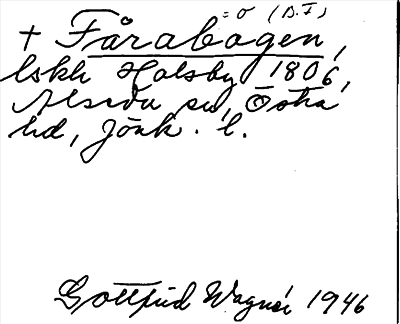 = o (D.F)
+ Fårabogen,
lskh Holsby 1806,
Alseda sn, Östra
hd, Jönk. l.
Gottfrid Wagner 1946